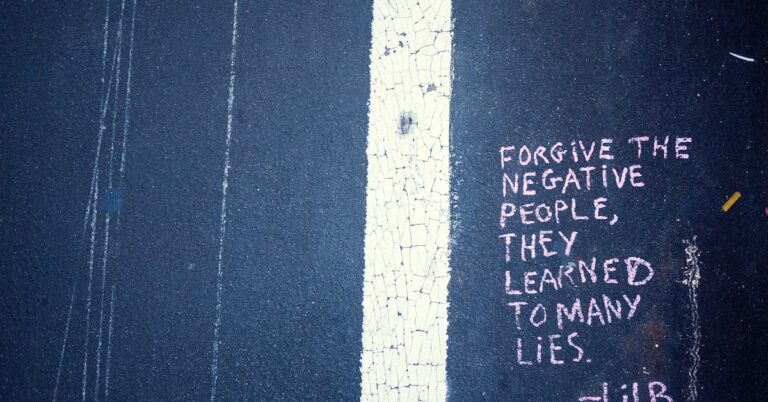 FORGIVE THE
NEGATIVE
PEOPLE,
THEY
LEARNED
TO MANY
LIES.
-LiLB